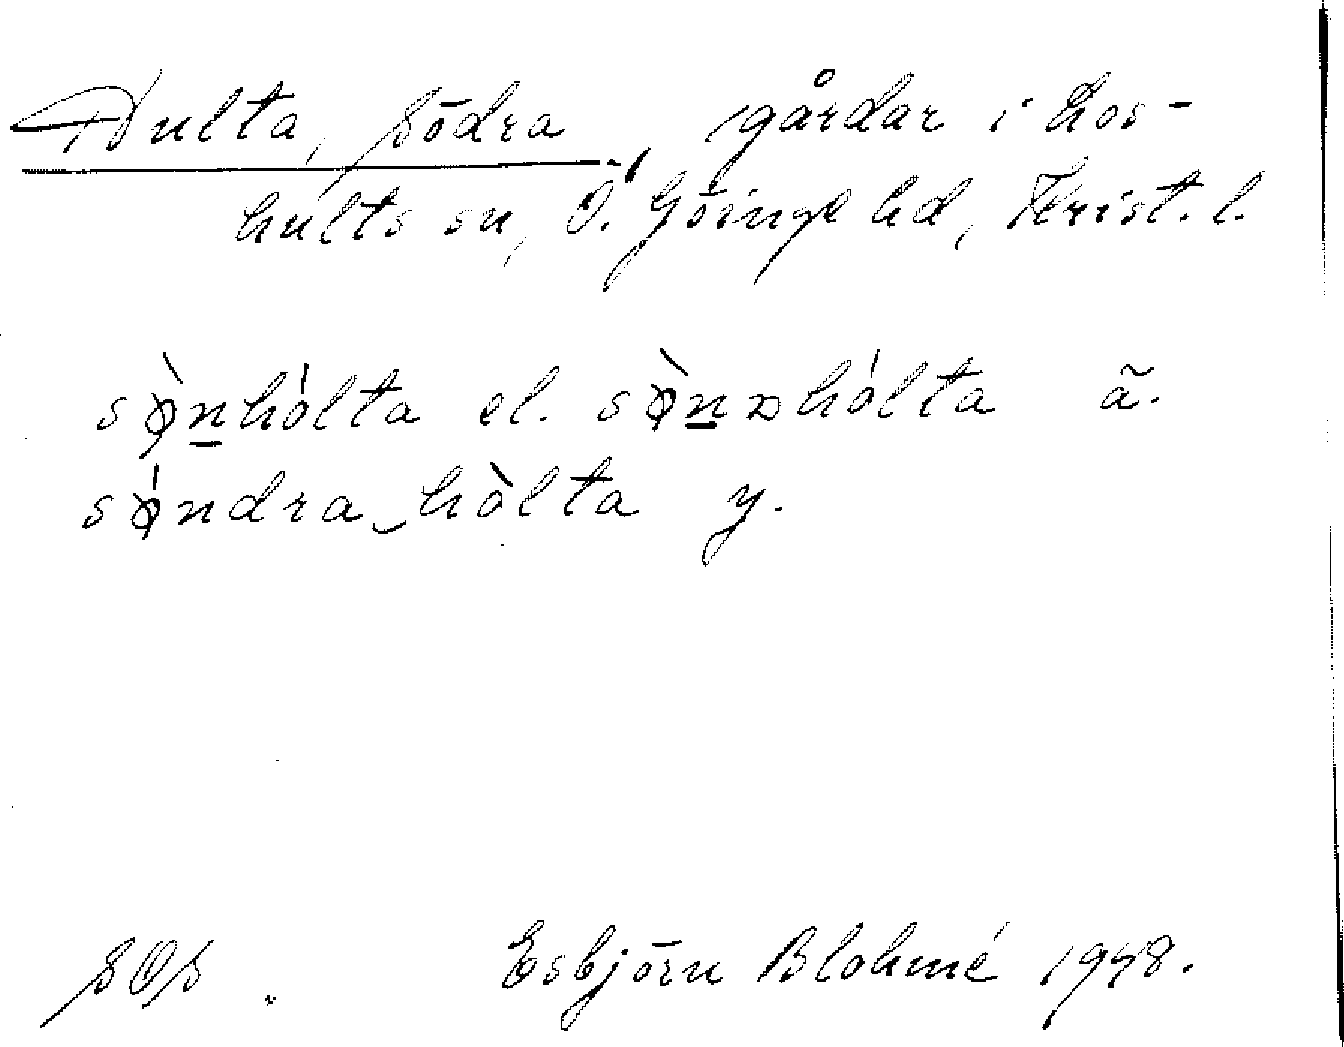 Hulta, Södra, gårdar i Los-
hults sn, Ö. Göinge hd, Krist. l.
sø̀n̲hólta el. sø̀n̲ɔhólta ä.
søndra‿hòlta y.
SOS. Esbjörn Blohmé 1948.